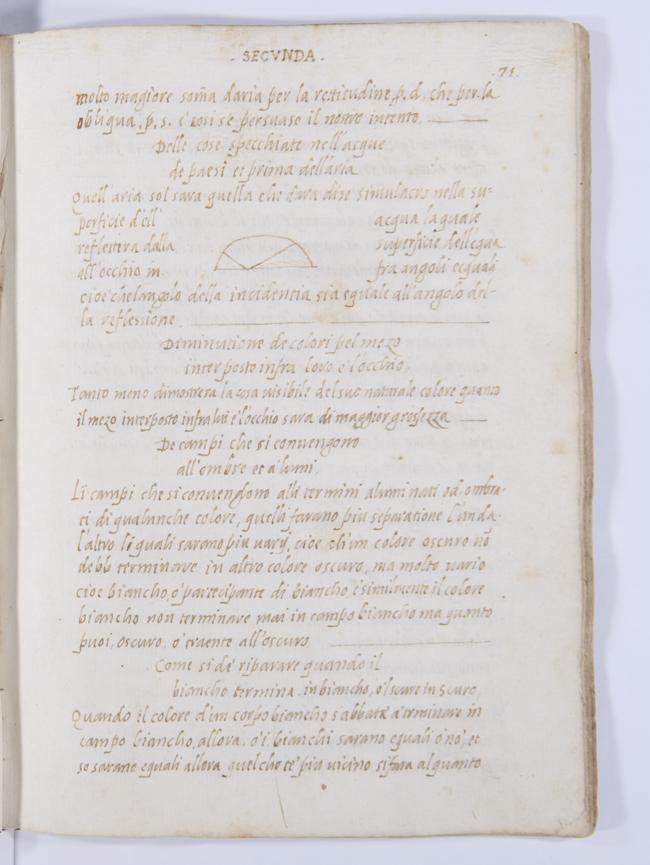 . SECVNDA .
. 71.
molto magiore som̃a daria per la rettitudine, p. d, che per la
obliqua, p. s. e cosi s'e persuaso il nostro intento,
Delle cose specchiate nell'acque
de paesi et prima dell'aria
Quell'aria sol sara quella che dara di se simulacro nella su=
perficie d'ell' acqua la quale
reflettera dalla superficie dell'cqua
all'occhio in fra angoli equali
cioe' che l'angolo della incidentia sia equale all'angolo del-
la reflessione
Diminutione de colori pel mezo
interposto infra loro e l'occhio
Tanto meno dimostrera la cosa visibile del suo naturale colore quanto
il mezo interposto infra lui e l'occhio sara di maggior grossezza
De campi che si convengono
all'ombre et a lumi,
Li campi che si convengono alli termini aluminati od ombra-
ti di qualunche colore, quelli farano piu separatione l'un da-
l'altro li quali sarano piu varÿ, cioe ch'un colore oscuro nõ
debb terminare in altro colore oscuro, ma molto vario
cioe bianche, o' partecipante di biancho, e' similmente il colore
biancho non terminare mai in campo biancho ma quanto
puoi, oscuro, o' traente all'oscuro
Come si de' riparare quando il
biancho termina. in biancho, o'l scuro in scuro,
Quando il colore d'un corpo biancho s'abbatte a' terminare in
campo biancho, allora, o' i bianchi sarano equali o' no', et
se sarano equali allora quel che te' piu vicino si fara alquanto